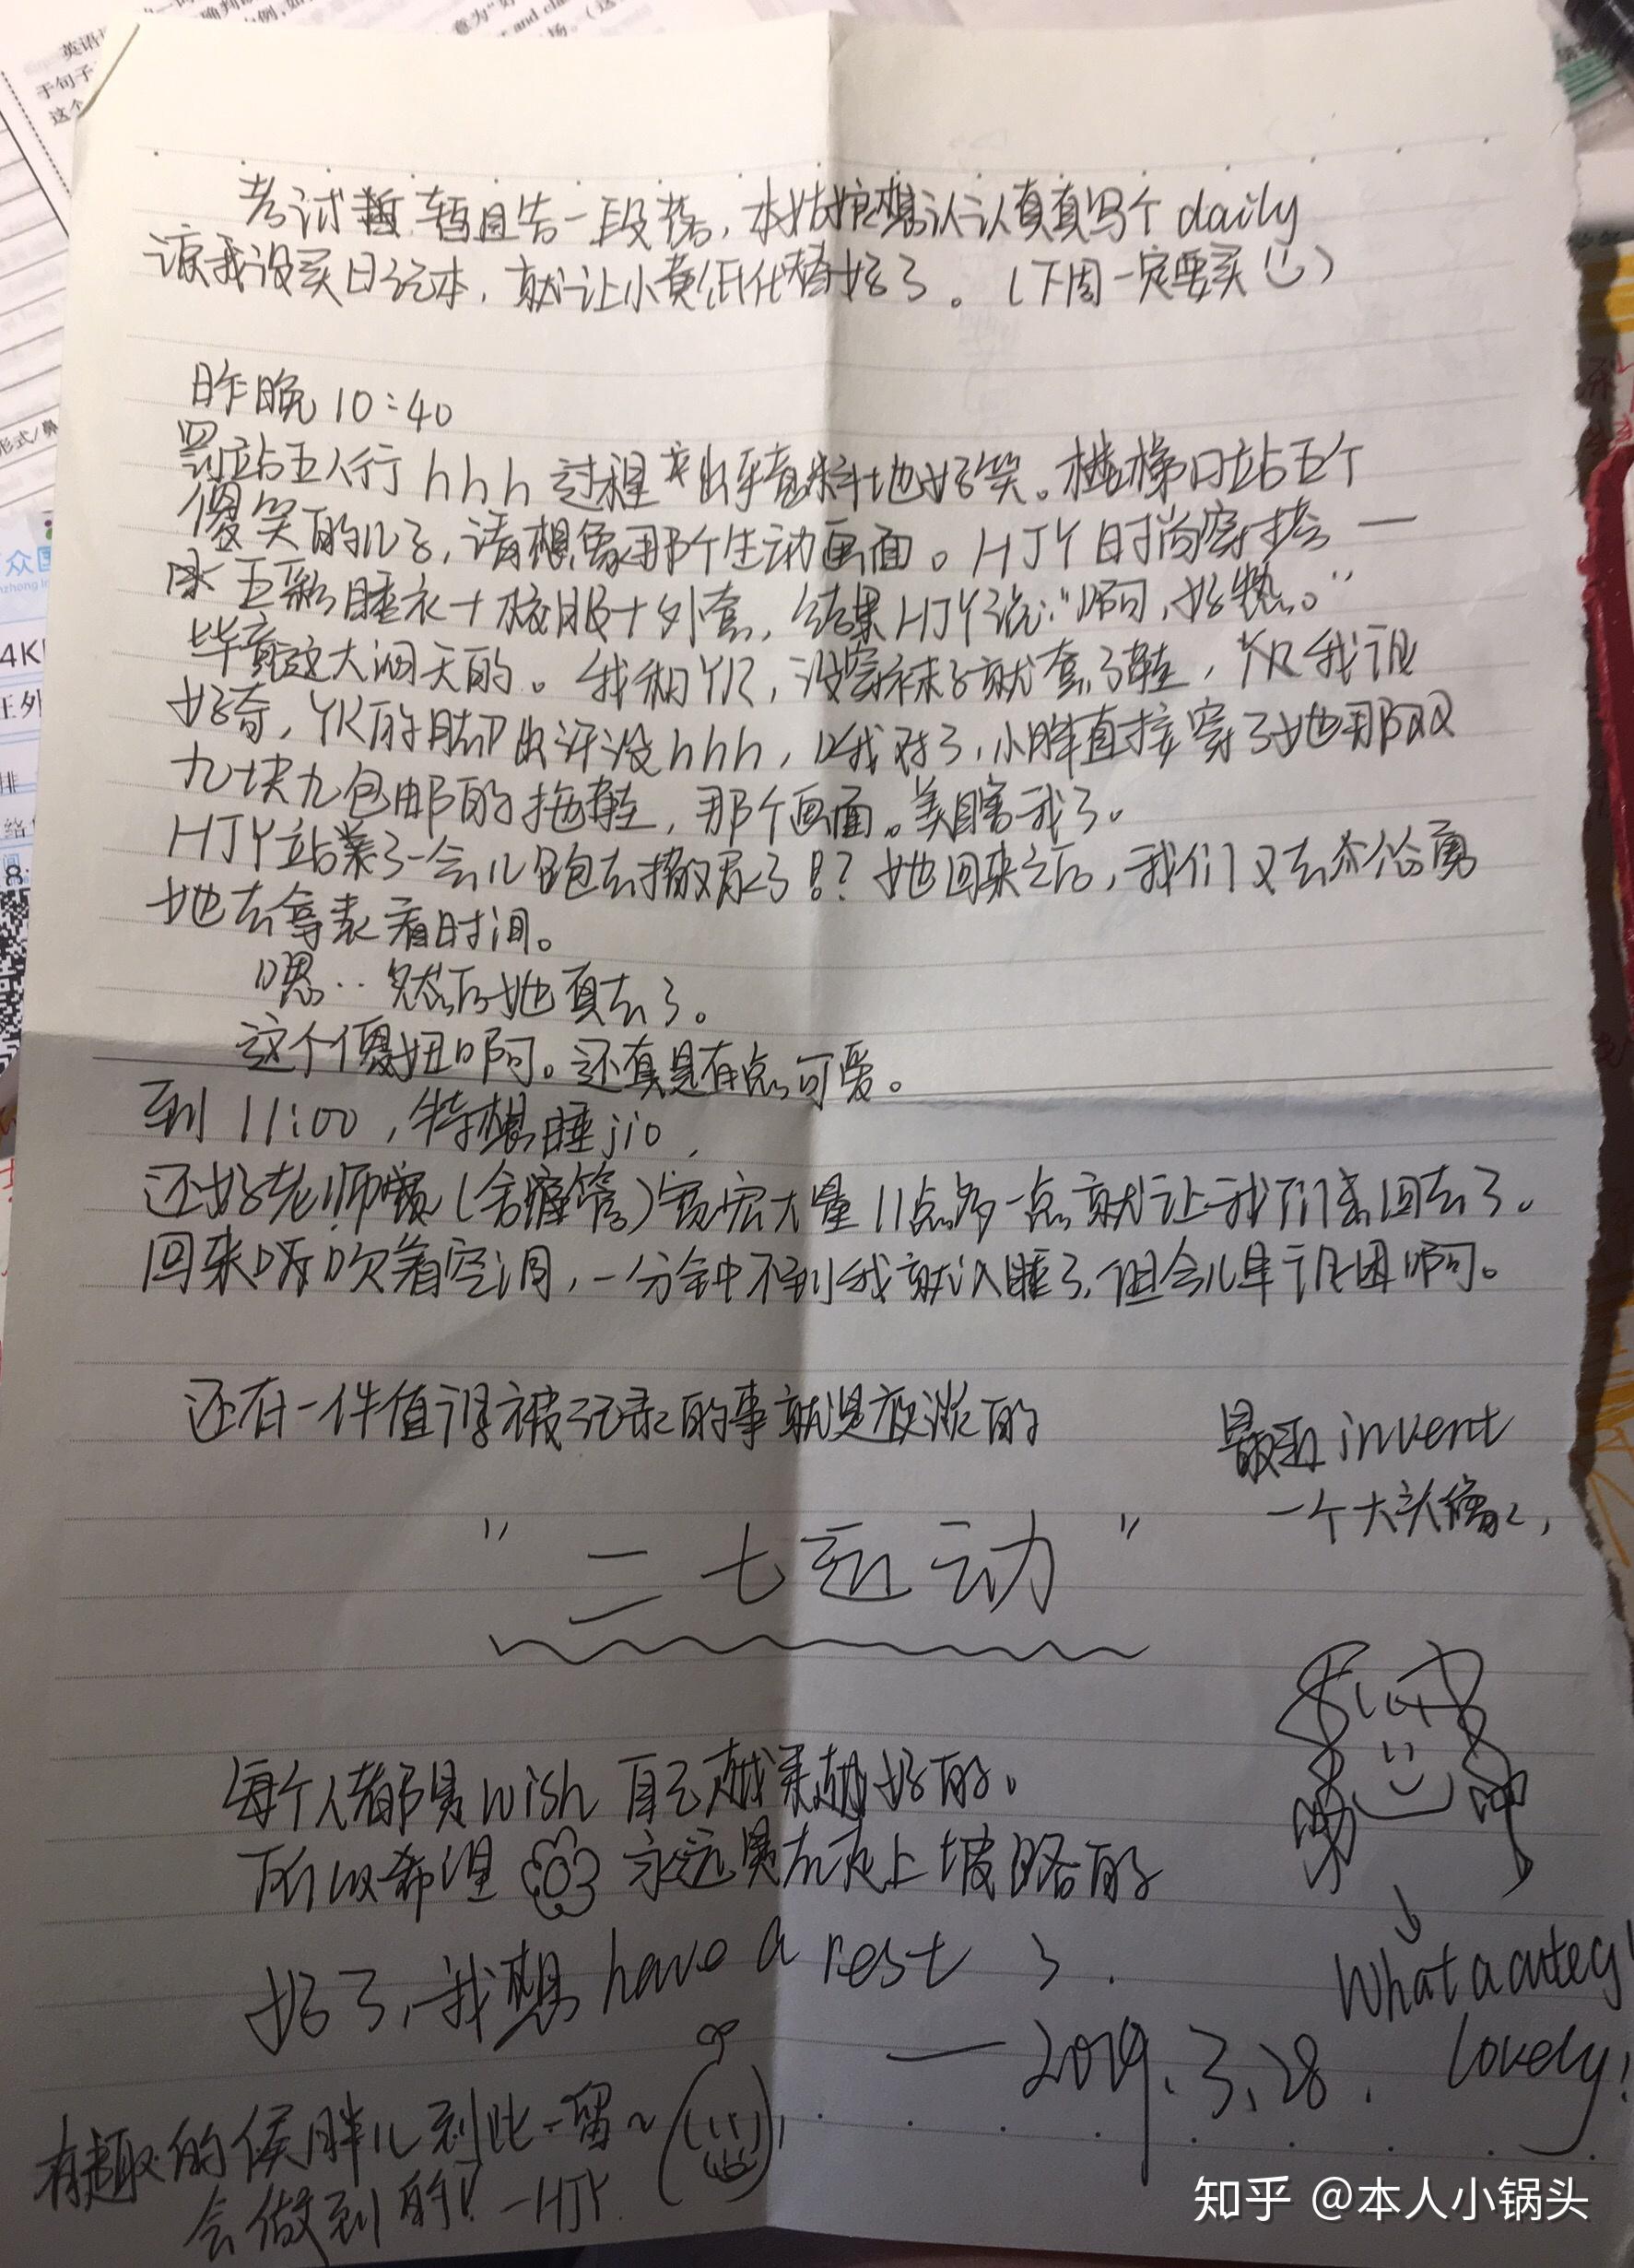 考试暂且告一段落，本姑娘想认认真真写个 daily
谅我没买日记本，就让小黄纸代替好了。（下周一定要买）
昨晚 10:40
罚站五人行 hhh 过程出乎意料地好笑。楼梯口站五个
傻笑的儿子，请想象那个生动画面。HJY 时尚穿搭 一
五彩睡衣+校服+外套，结果HJY说：“啊，好热。”
毕竟这大闷天的。我和YR，没穿袜子就套了鞋，
好奇，YR的脚出汗没hhh，对了，小胖直接穿了她那双
九块九包邮的拖鞋，那个画面。美瞎我了。
HJY站累了一会儿跑去撒尿了!? 她回来之后，我们又去怂恿
她去拿表看时间。
嗯.. 然后她真去了。
这个傻妞啊。还真是有点可爱。
到 11:00，特想睡jio，
还好老师（宿管）宽宏大量 11点多一点就让我们回去了。
回来吹着空调，一分钟不到我就入睡了，
还有一件值得被记录的事就是夜谈的
最近 invent
一个大头像，
“二七运动”
每个人都是wish 自己越来越好的。
所以希望 永远是在走上坡路的
好了，我想 have a rest 了.
What a cutey!
lovely!
—2019.3.28.
有趣的侯胖儿到此一留~
会做到的! —HJY
知乎 @本人小锅头